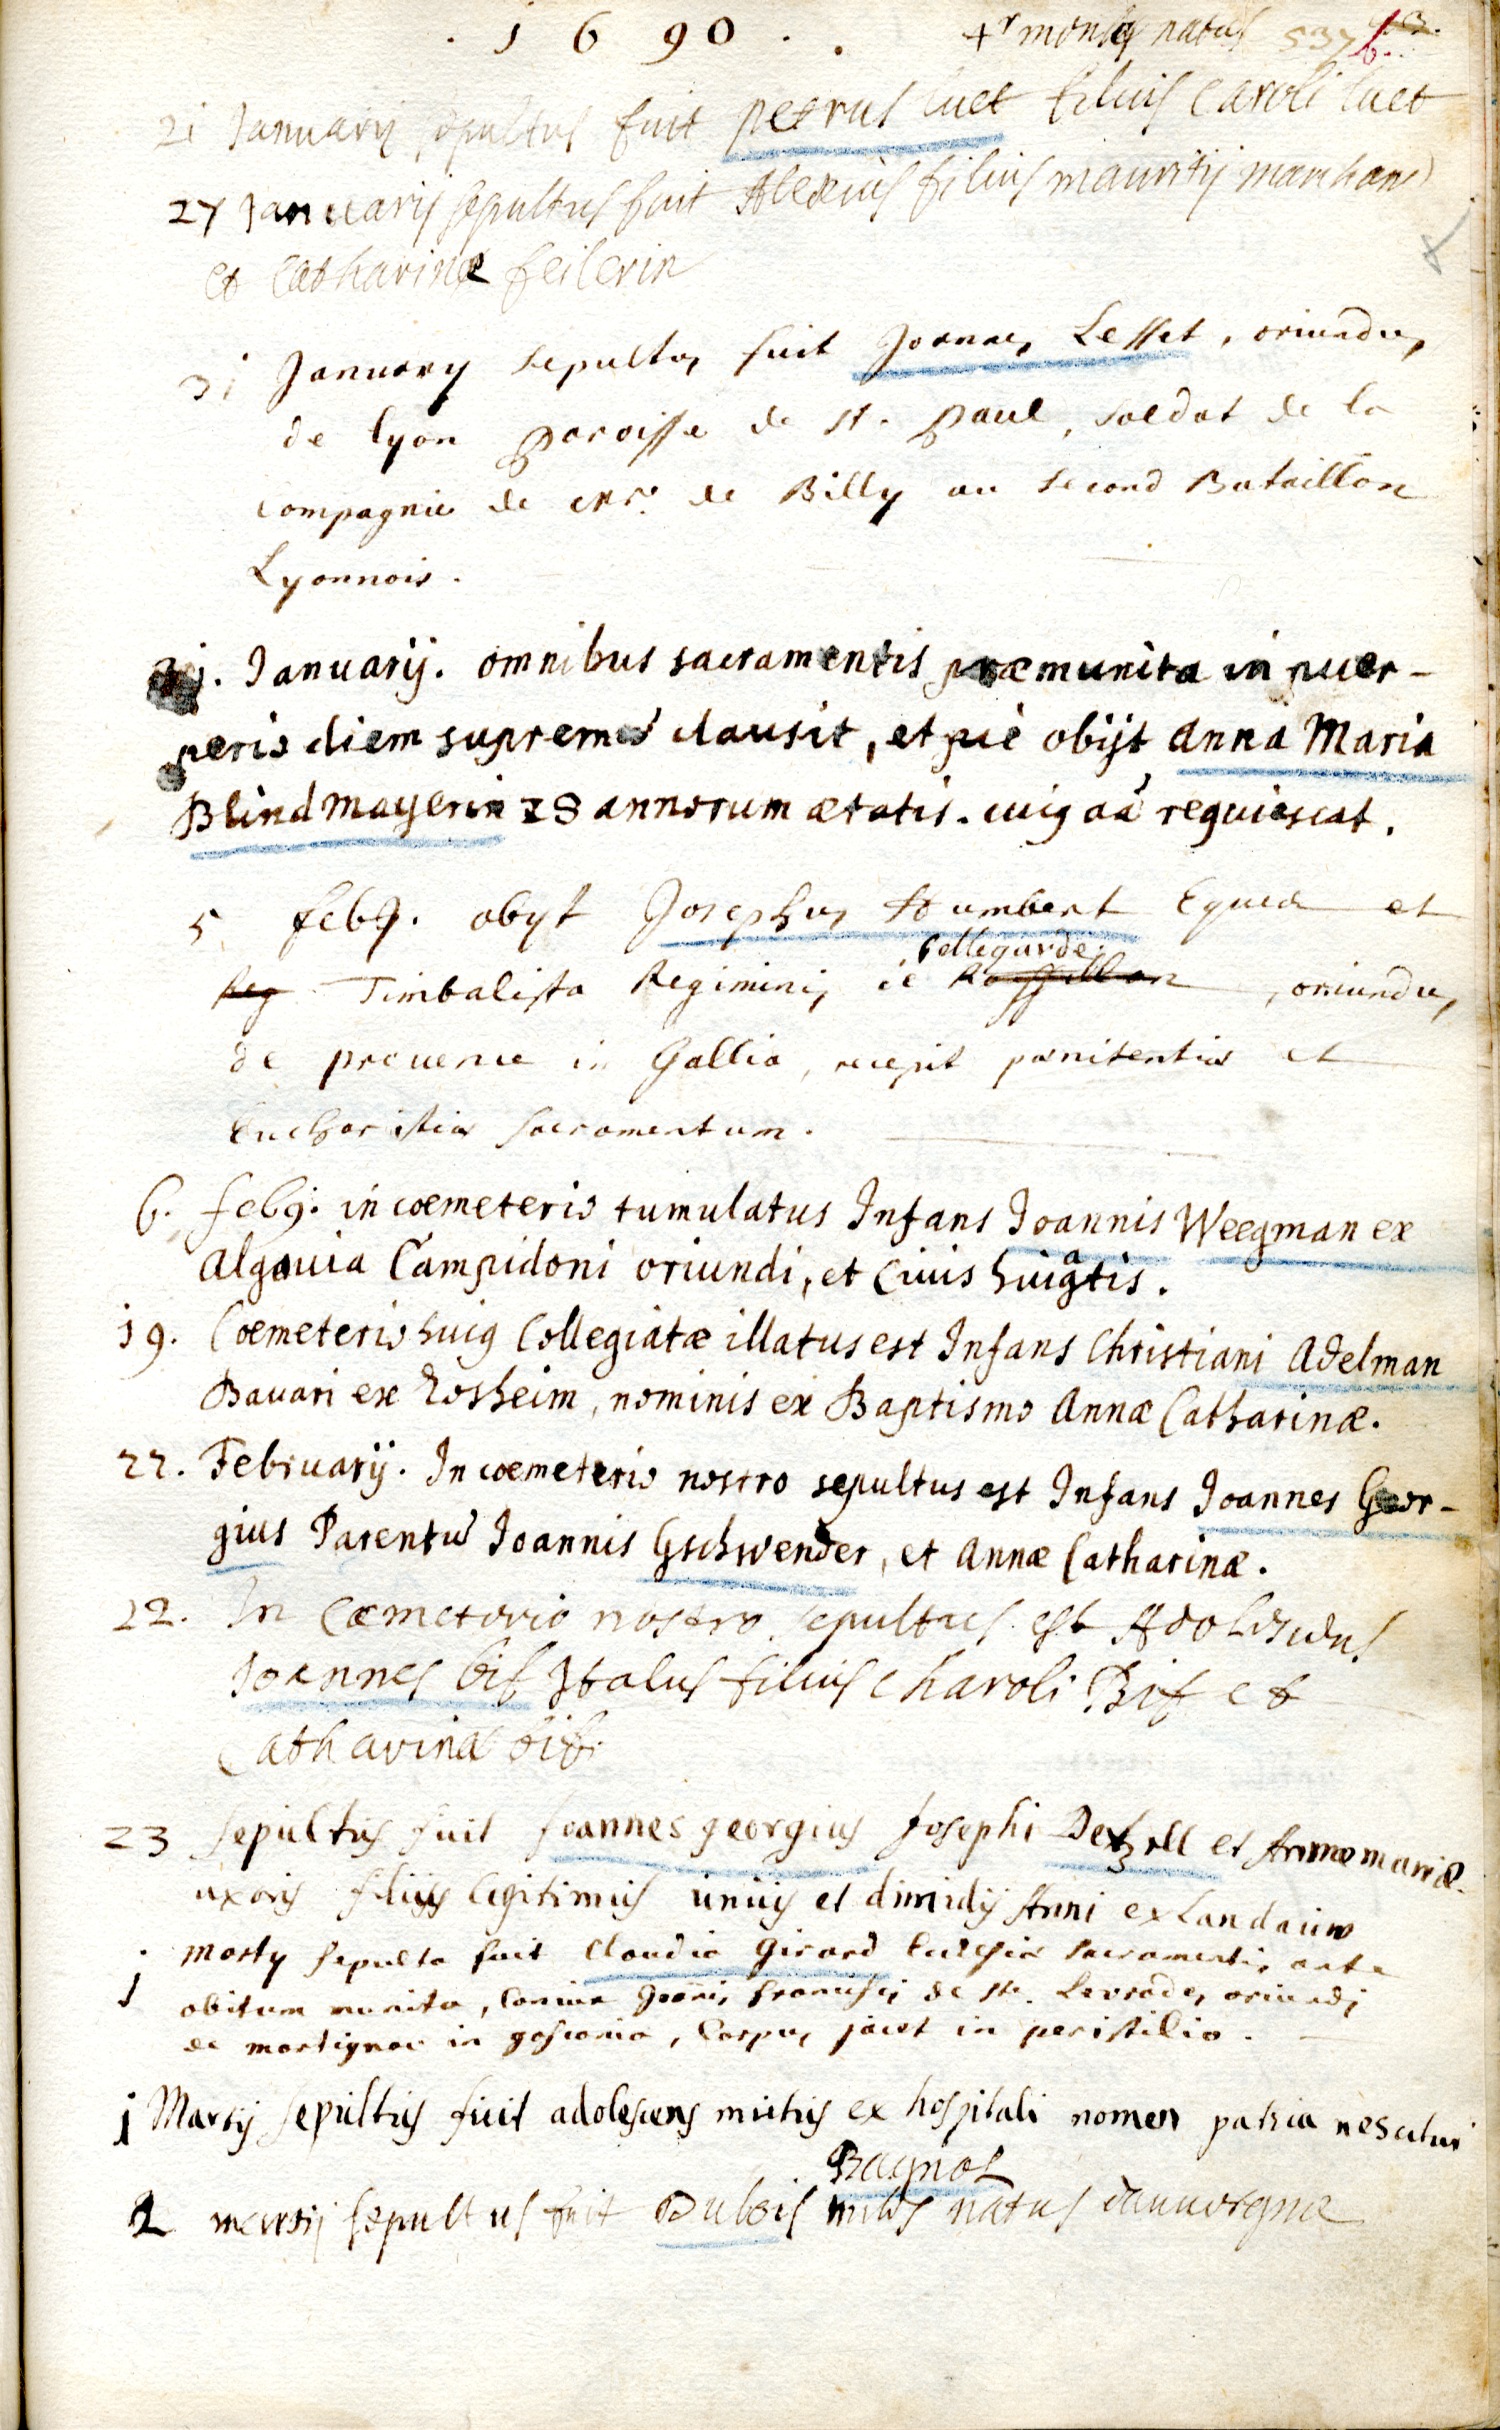 . 1 6 90 . .
4r mensis natus 537
21 Januarij sepultus fuit petrus luet filius Caroli luet
27 Januarij sepultus fuit Alexius filius mauritij marchand
et Catharinæ feilerin
31 January sepultus fuit Joannes Lesset, oriundus
de lyon paroisse de st. Paul, soldat de la
compagnie de Mr. de Billy au second Bataillon
Lyonnois.
31. Januarij. omnibus sacramentis præmunita in puer-
perio diem supremū clausit, et piè obijt Anna Maria
Blindmayerin 28 annorum ætatis. cuig aīa requiescat.
5 feb9. obyt Josephus Humbert Eques et
Reg Timbalista Regiminis de Rossillon Bellegarde, oriundus
de provence in Gallia, recepit pœnitentiæ et
Eucharistiæ sacramentum.
6. feb9: in cœmeterio tumulatus Infans Joannis Weegman ex
Algauia Campidoni oriundi, et Ciuis huigatis.
19. Cœmeterio huig Collegiatæ illatus est Infans Christiani Adelman
Bavari ex Rosheim, nominis ex Baptismo Annæ Catharinæ.
22. Februarij. In cœmeterio nostro sepultus est Infans Joannes Geor-
gius Parentū Joannis Gschwender, et Annæ Catharinæ.
22. In Cœmeterio nostro sepultus est Adolescens
Joannes bif Italus filius Charoli Bif et
Catharinæ bif.
23 sepultus fuit Joannes georgius Josephi Detzell et Annæ mariæ
uxoris filius legitimus unius et dimidij Anni ex Landauw
1 Martij sepulta fuit Claudia Girard Ecclesiæ sacramentis ante
obitum munita, Coniux Joānis francisci de ste. Levrade, oriundi
de martignac in gasconia, Corpus jacet in peristilio.
1 Martij sepultus fuit adolescens mutus ex hospitali nomen patria nescitur
Bagnol
2 martij sepultus fuit Dubois miles natus dauvergne